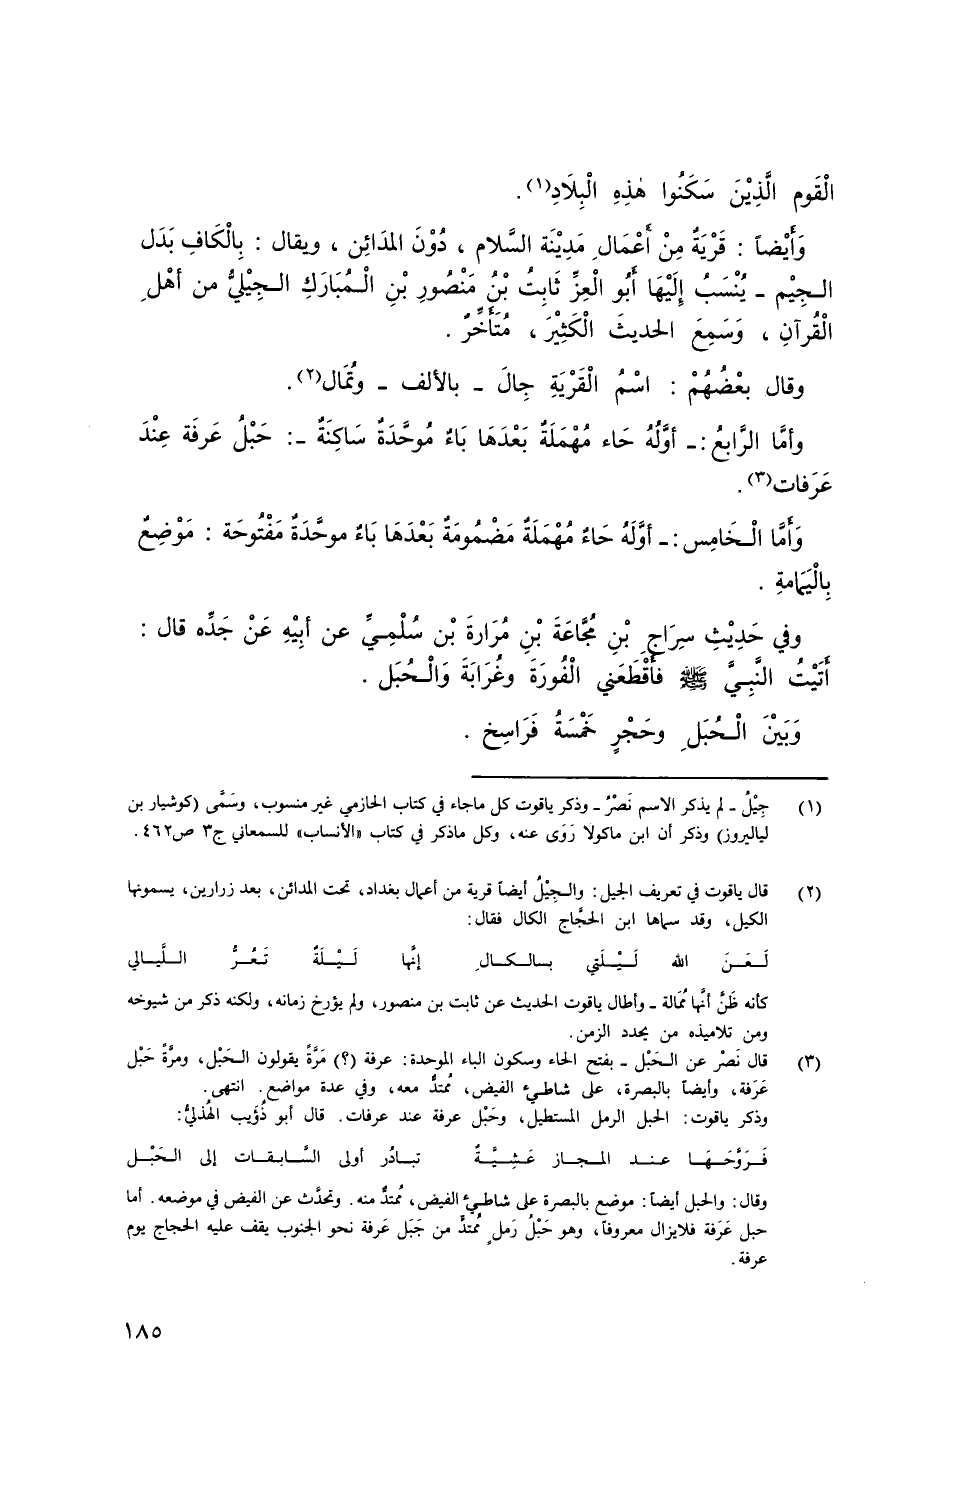 الْقَوم الَّذِيْنَ سَكَنُوا هٰذِهِ الْبِلَادِ(١).
وَأَيْضاً : قَرْيَةٌ مِنْ أَعْمَالِ مَدِيْنَة السَّلام ، دُوْنَ المَدَائِن ، ويقال : بِالْكَافِ بَدَل
الـجِيْم ـ يُنْسَبُ إِلَيْهَا أَبُو الْعِزِّ ثَابِتُ بْنُ مَنْصُورِ بْنِ الْـمُبَارَكِ الـجِيْلِيُّ من أهْلِ
الْقُرآنِ ، وَسَمِعَ الحديثَ الْكَثِيْرَ ، مُتَأَخِّرٌ .
وقال بعْضُهُمْ : اسْمُ الْقَرْيَةِ جالَ ـ بالألف ـ وتُمَال(٢).
وأمَّا الرَّابِعُ :ـ أوَّلُهُ حَاء مُهْمَلَةٌ بَعْدَهَا بَاءٌ مُوحَّدَةٌ سَاكِنَةٌ ـ: حَبْلُ عَرفَة عِنْدَ
عَرَفات(٣).
وَأَمَّا الْـخَامِس :ـ أوَّلَهُ حَاءٌ مُهْمَلَةٌ مَضْمُومَةٌ بَعْدَهَا بَاءٌ موحَّدَةٌ مَفْتُوحَة : مَوْضِعٌ
بِالْيَمَامةِ .
وفي حَدِيْثِ سِرَاجِ بْنِ مُجَّاعَةَ بْنِ مُرَارةَ بْن سُلْمِيِّ عن أبيْهِ عَنْ جَدِّه قال :
أَتَيْتُ النَّبِيَّ ﷺ فأَقْطَعَني الْفُورَةَ وغُرَابَةَ وَالْـحُبَل .
وَبَيْنَ الْـحُبَلِ وحَجْرٍ خَمْسَةُ فَرَاسِخ .
(١) جِيْلُ ـ لم يذكر الاسم نَصْرٌ ـ وذكر ياقوت كل ماجاء في كتاب الحازمي غير منسوب، وسَمَّى (كوشيار بن
لياليروز) وذكر أن ابن ماكولا رَوَى عنه، وكل ماذكر في كتاب «الأنساب» للسمعاني ج٣ ص٤٦٢ .
(٢) قال ياقوت في تعريف الجيل: والـجِيْلُ أيضاً قرية من أعمال بغداد، تحت المدائن، بعد زرارين، يسمونها
الكيل، وقد سماها ابن الحجَّاج الكال فقال:
لَـعَـنَ الله لَـيْـلَتي بـالـكـالِ إنَّها لَـيْـلَةٌ تَـعُـرُّ الـلَّيـالي
كأنه ظَنَّ أنَّها مُمَالة ـ وأطال ياقوت الحديث عن ثابت بن منصور، ولم يؤرخ زمانه، ولكنه ذكر من شيوخه
ومن تلاميذه من يحدد الزمن.
(٣) قال نَصْر عن الـحَبْل ـ بفتح الحاء وسكون الباء الموحدة: عرفة (؟) مَرَّةً يقولون الـحَبْل، ومرَّةً حَبْل
عَرَفة، وأيضاً بالبصرة، على شاطيء الفيض، مُمتدٌّ معه، وفي عدة مواضع. انتهى.
وذكر ياقوت: الحبل الرمل المستطيل، وحَبْل عرفة عند عرفات. قال أبو ذُؤَيب الهُذليُّ:
فَـرَوَّحَـهَـا عـنـد الـمـجـاز عَـشِـيَّـةً تـبـادُر أولى السَّـابـقـات إلى الـحَـبْـل
وقال: والحبل أيضاً: موضع بالبصرة على شاطيء الفيض، مُمتدٌّ منه. وتحدَّث عن الفيض في موضعه. أما
حبل عَرَفة فلايزال معروفاً، وهو حَبْلُ رَملٍ مُمتدٌّ من جَبَل عَرفة نحو الجنوب يقف عليه الحجاج يوم
عرفة.
١٨٥